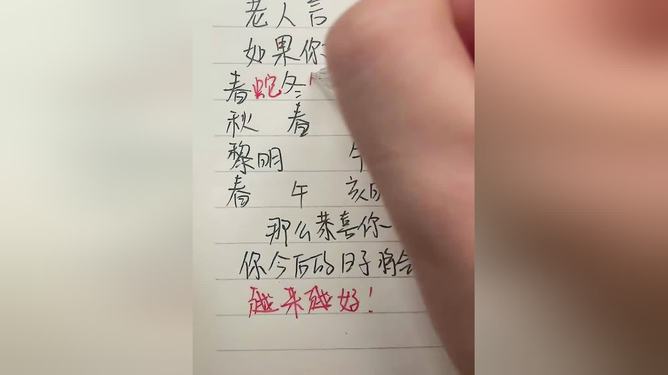 老人言
如果你
春蛇冬
秋 春
黎明
春 午 亥
那么恭喜你
你今后的日子将会
越来越好！